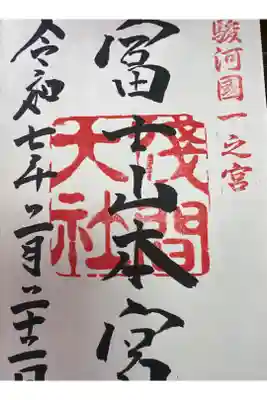 駿河國一之宮
冨士山本宮
淺間
大社
令和七年二月二十二日